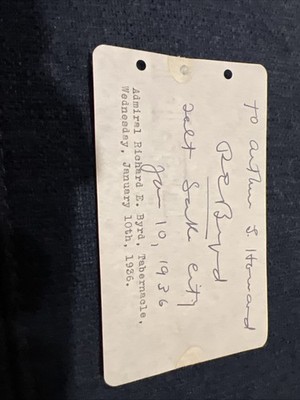 To Arthur S. Howard
R E Byrd
Salt Lake City
Jan 10, 1936
Admiral Richard E. Byrd, Tabernacle,
Wednesday, January 10th, 1936.